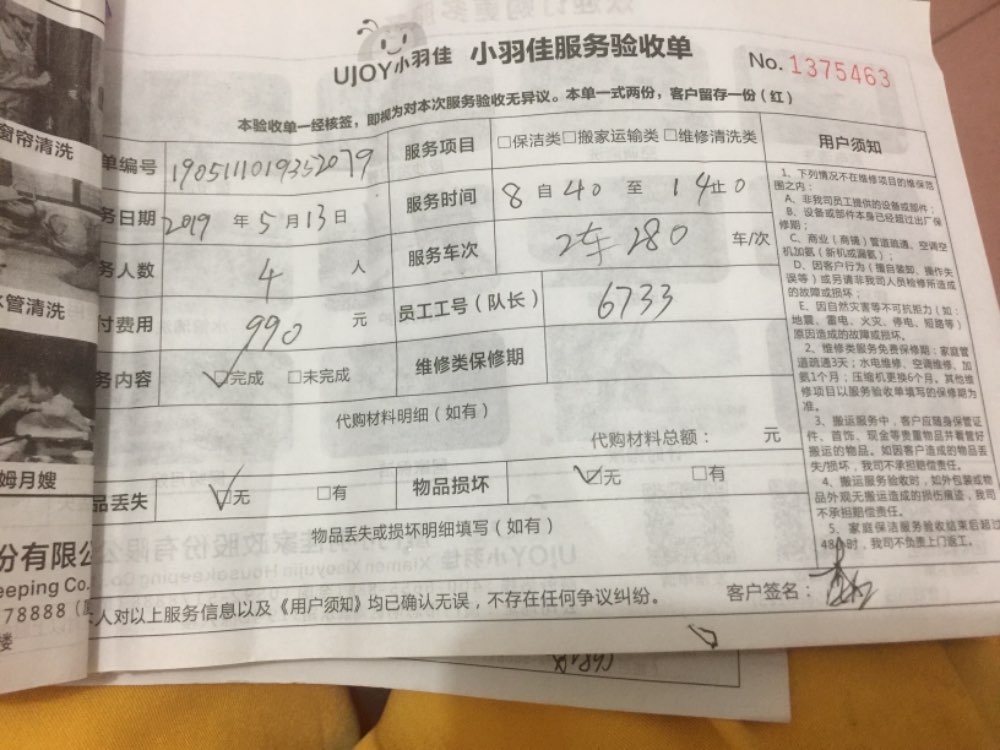 UJOY小羽佳 小羽佳服务验收单
No.1375463
本验收单一经核签，即视为对本次服务验收无异议。本单一式两份，客户留存一份（红）
单编号 1905111019352079 服务项目 □保洁类□搬家运输类□维修清洗类
务日期 2019 年 5 月 13 日 服务时间 8 自 40 至 14 止 0
务人数 4 人 服务车次 2车 280 车/次
付费用 990 元 员工工号（队长） 6733
务内容 ☑完成 □未完成 维修类保修期
代购材料明细（如有）
代购材料总额： 元
品丢失 ☑无 □有 物品损坏 ☑无 □有
物品丢失或损坏明细填写（如有）
人对以上服务信息以及《用户须知》均已确认无误，不存在任何争议纠纷。 客户签名：
用户须知
1、下列情况不在维修项目的维保范
围之内：
A、非我司员工提供的设备或部件；
B、设备或部件本身已经超过出厂保
修期；
C、商业（商铺）管道疏通、空调空
机加氨（新机或漏氨）；
D、因客户行为（擅自装卸、操作失
误等）或另请非我司人员检修所造成
的故障或损坏；
E、因自然灾害等不可抗拒力（如：
地震、雷电、火灾、停电、短路等）
原因造成的故障或损坏。
2、维修类服务免费保修期：家庭管
道疏通3天；水电维修、空调维修、加
氨1个月；压缩机更换6个月。其他维
修项目以服务验收单填写的保修期为
准。
3、搬运服务中，客户应随身保管证
件、首饰、现金等贵重物品并看管好
搬运的物品。如因客户造成的物品丢
失/损坏，我司不承担赔偿责任。
4、搬运服务验收时，如外包装或物
品外观无搬运造成的损伤痕迹，我司
不承担赔偿责任。
5、家庭保洁服务验收结束后超过
48小时，我司不负责上门返工。
窗帘清洗
水管清洗
姆月嫂
份有限公
eeping Co.
78888（厦
楼